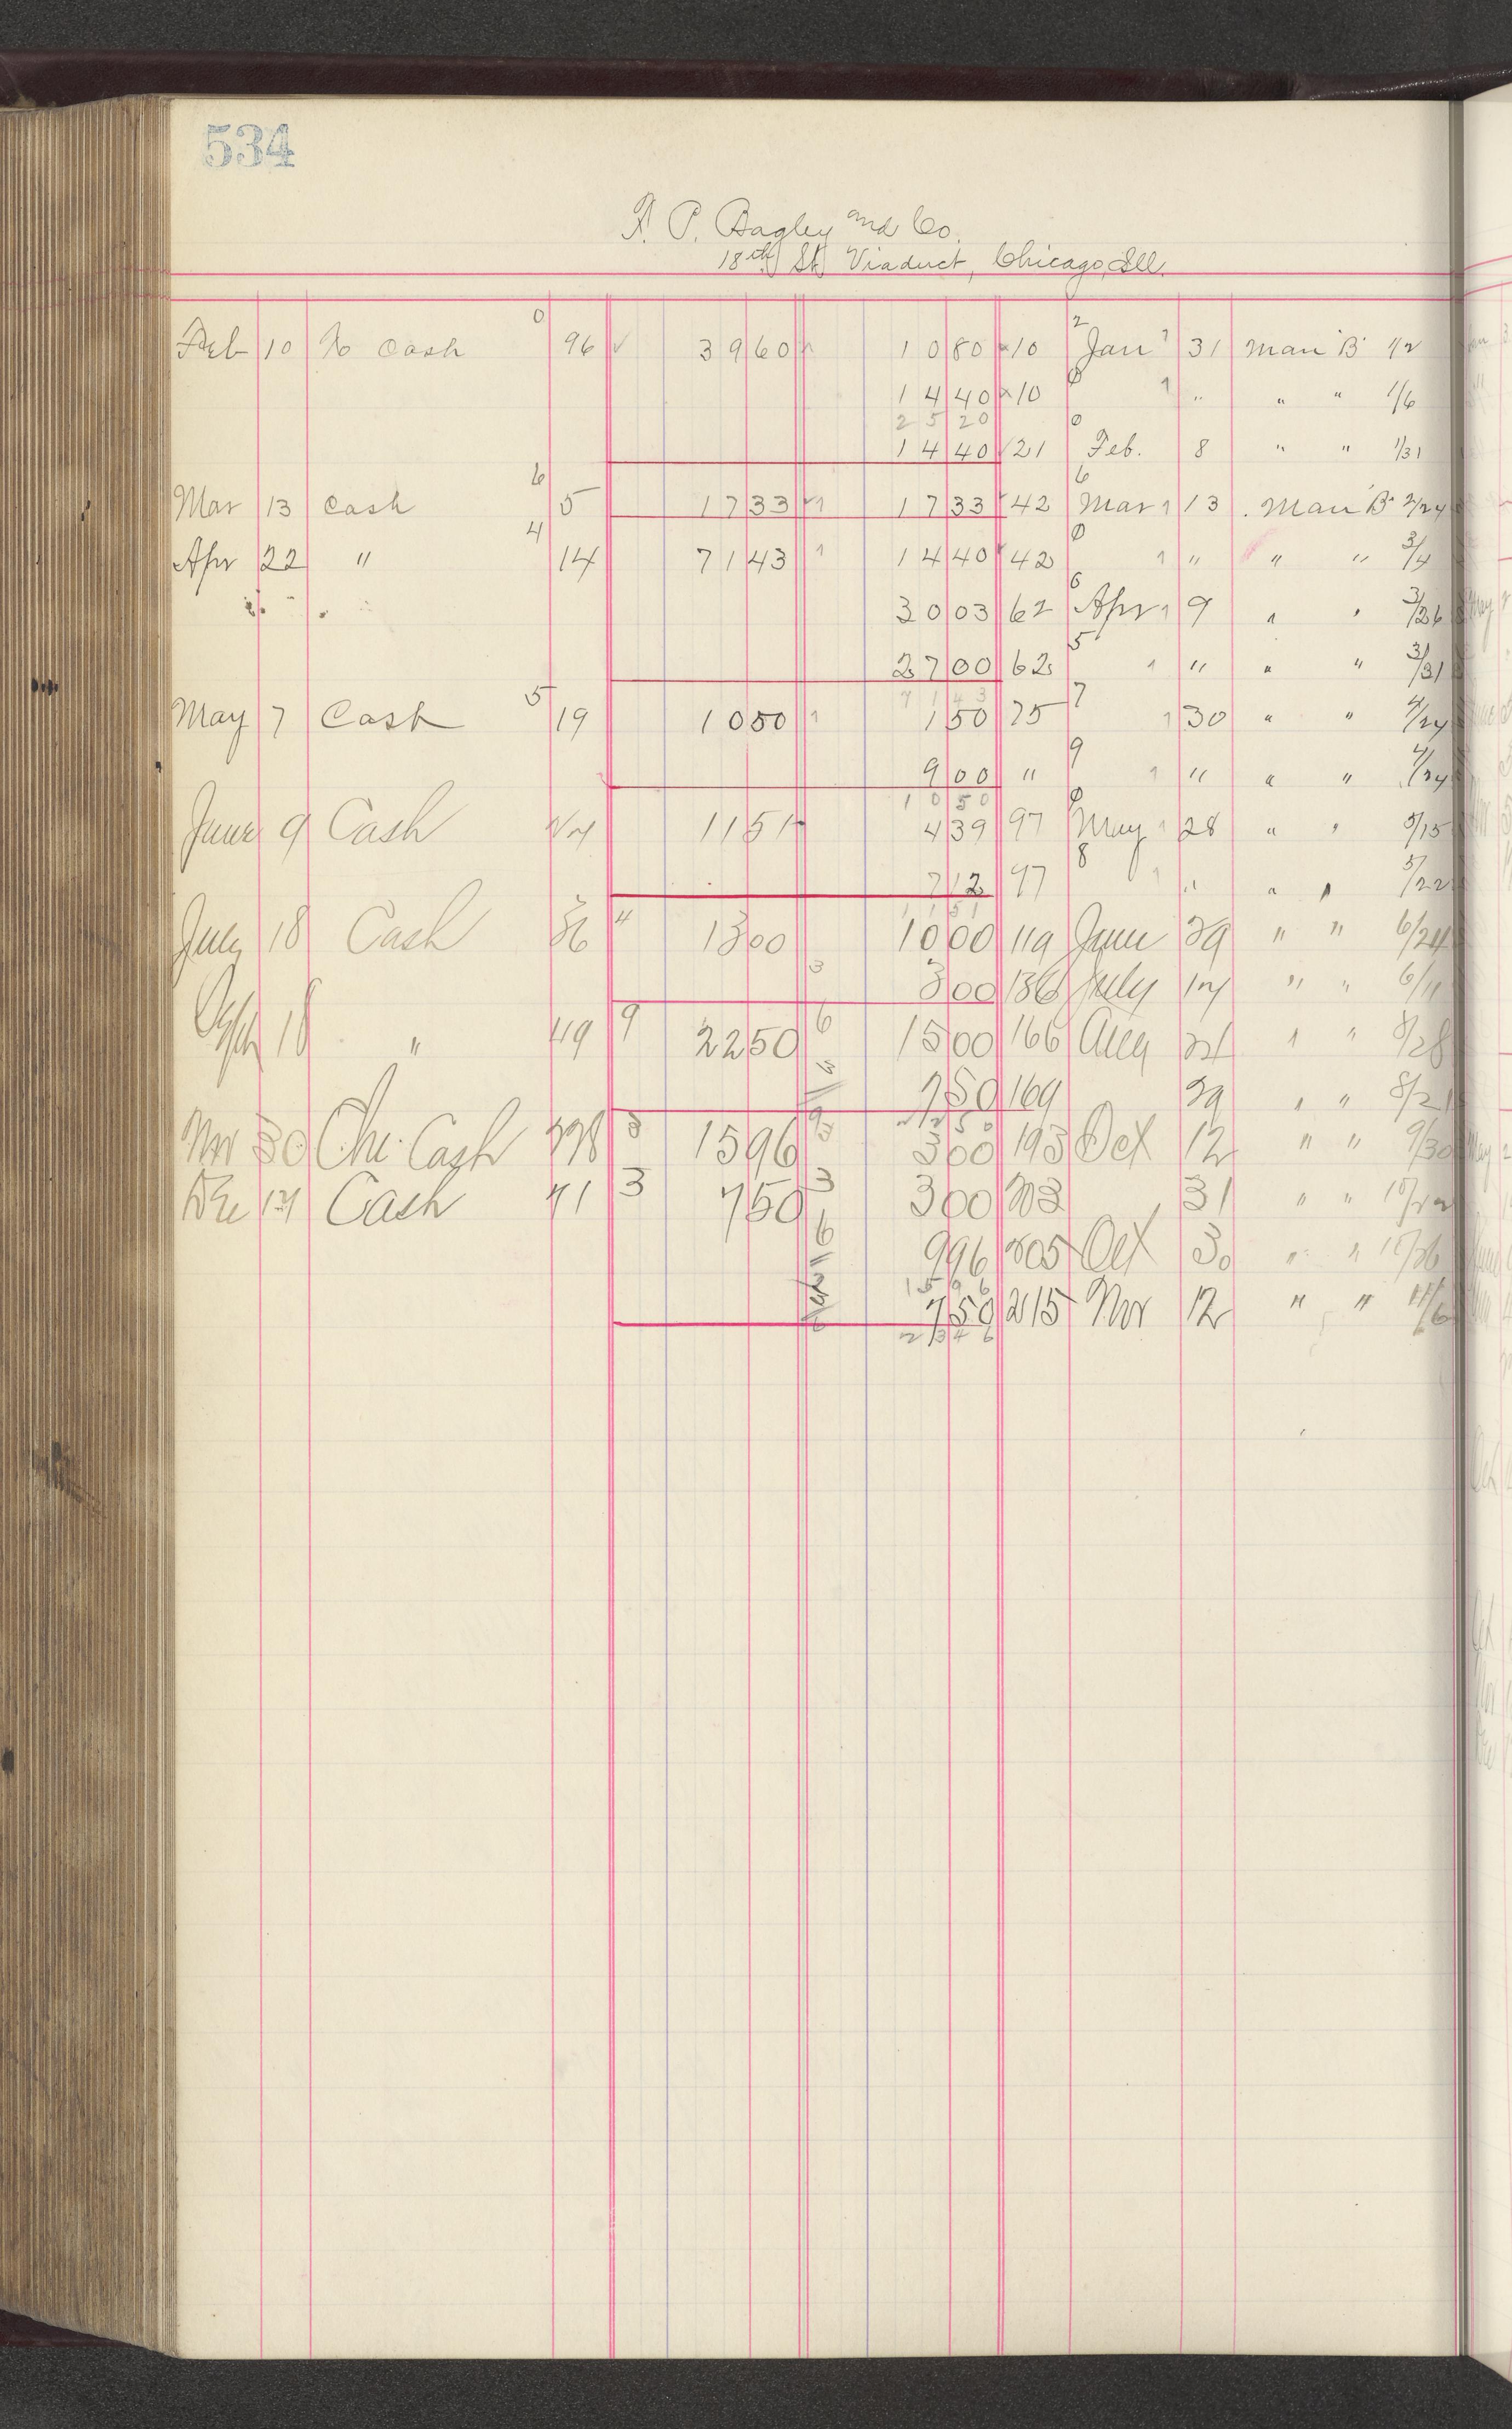 534
F. P. Bagley and Co.
18th St Viaduct, Chicago, Ill.
Feb 10 To Cash 0 96 √ 39 60 10 80 10 2 Jan 31 Man B 1/2
14 40 10 0 " " " 1/6
25 20
14 40 √ 21 0 Feb. 8 " " 1/31
Mar 13 Cash 6 5 17 33 17 33 42 6 Mar 13 Man B 2/24
Apr 22 " 4 14 71 43 14 40 42 0 " " " 3/4
30 03 62 6 Apr 9 " " 3/26
27 00 62 5 " " " 3/31
71 43
May 7 Cash 5 19 10 50 1 50 75 7 30 " " 4/24
9 00 " 9 " " " 4/24
10 50
June 9 Cash 11 51 4 39 97 0 May 28 " " 5/15
7 12 97 8 " " " 5/22
11 51
July 18 Cash 36 4 13 00 10 00 119 June 29 " " 6/24
3 3 00 136 July 17 " " 6/11
18 " 49 9 22 50 6 15 00 166 Aug 21 " " 8/28
7 50 169 29 " " 8/21
22 50
Nov 30 Chi. Cash 3 15 96 3 00 193 Oct 12 " " 9/30
Dec 17 Cash 71 3 7 50 3 3 00 203 31 " "
6 9 96 205 Oct 30 " " 10/26
15 96
7 50 215 Nov 12 " " 11/6
23 46